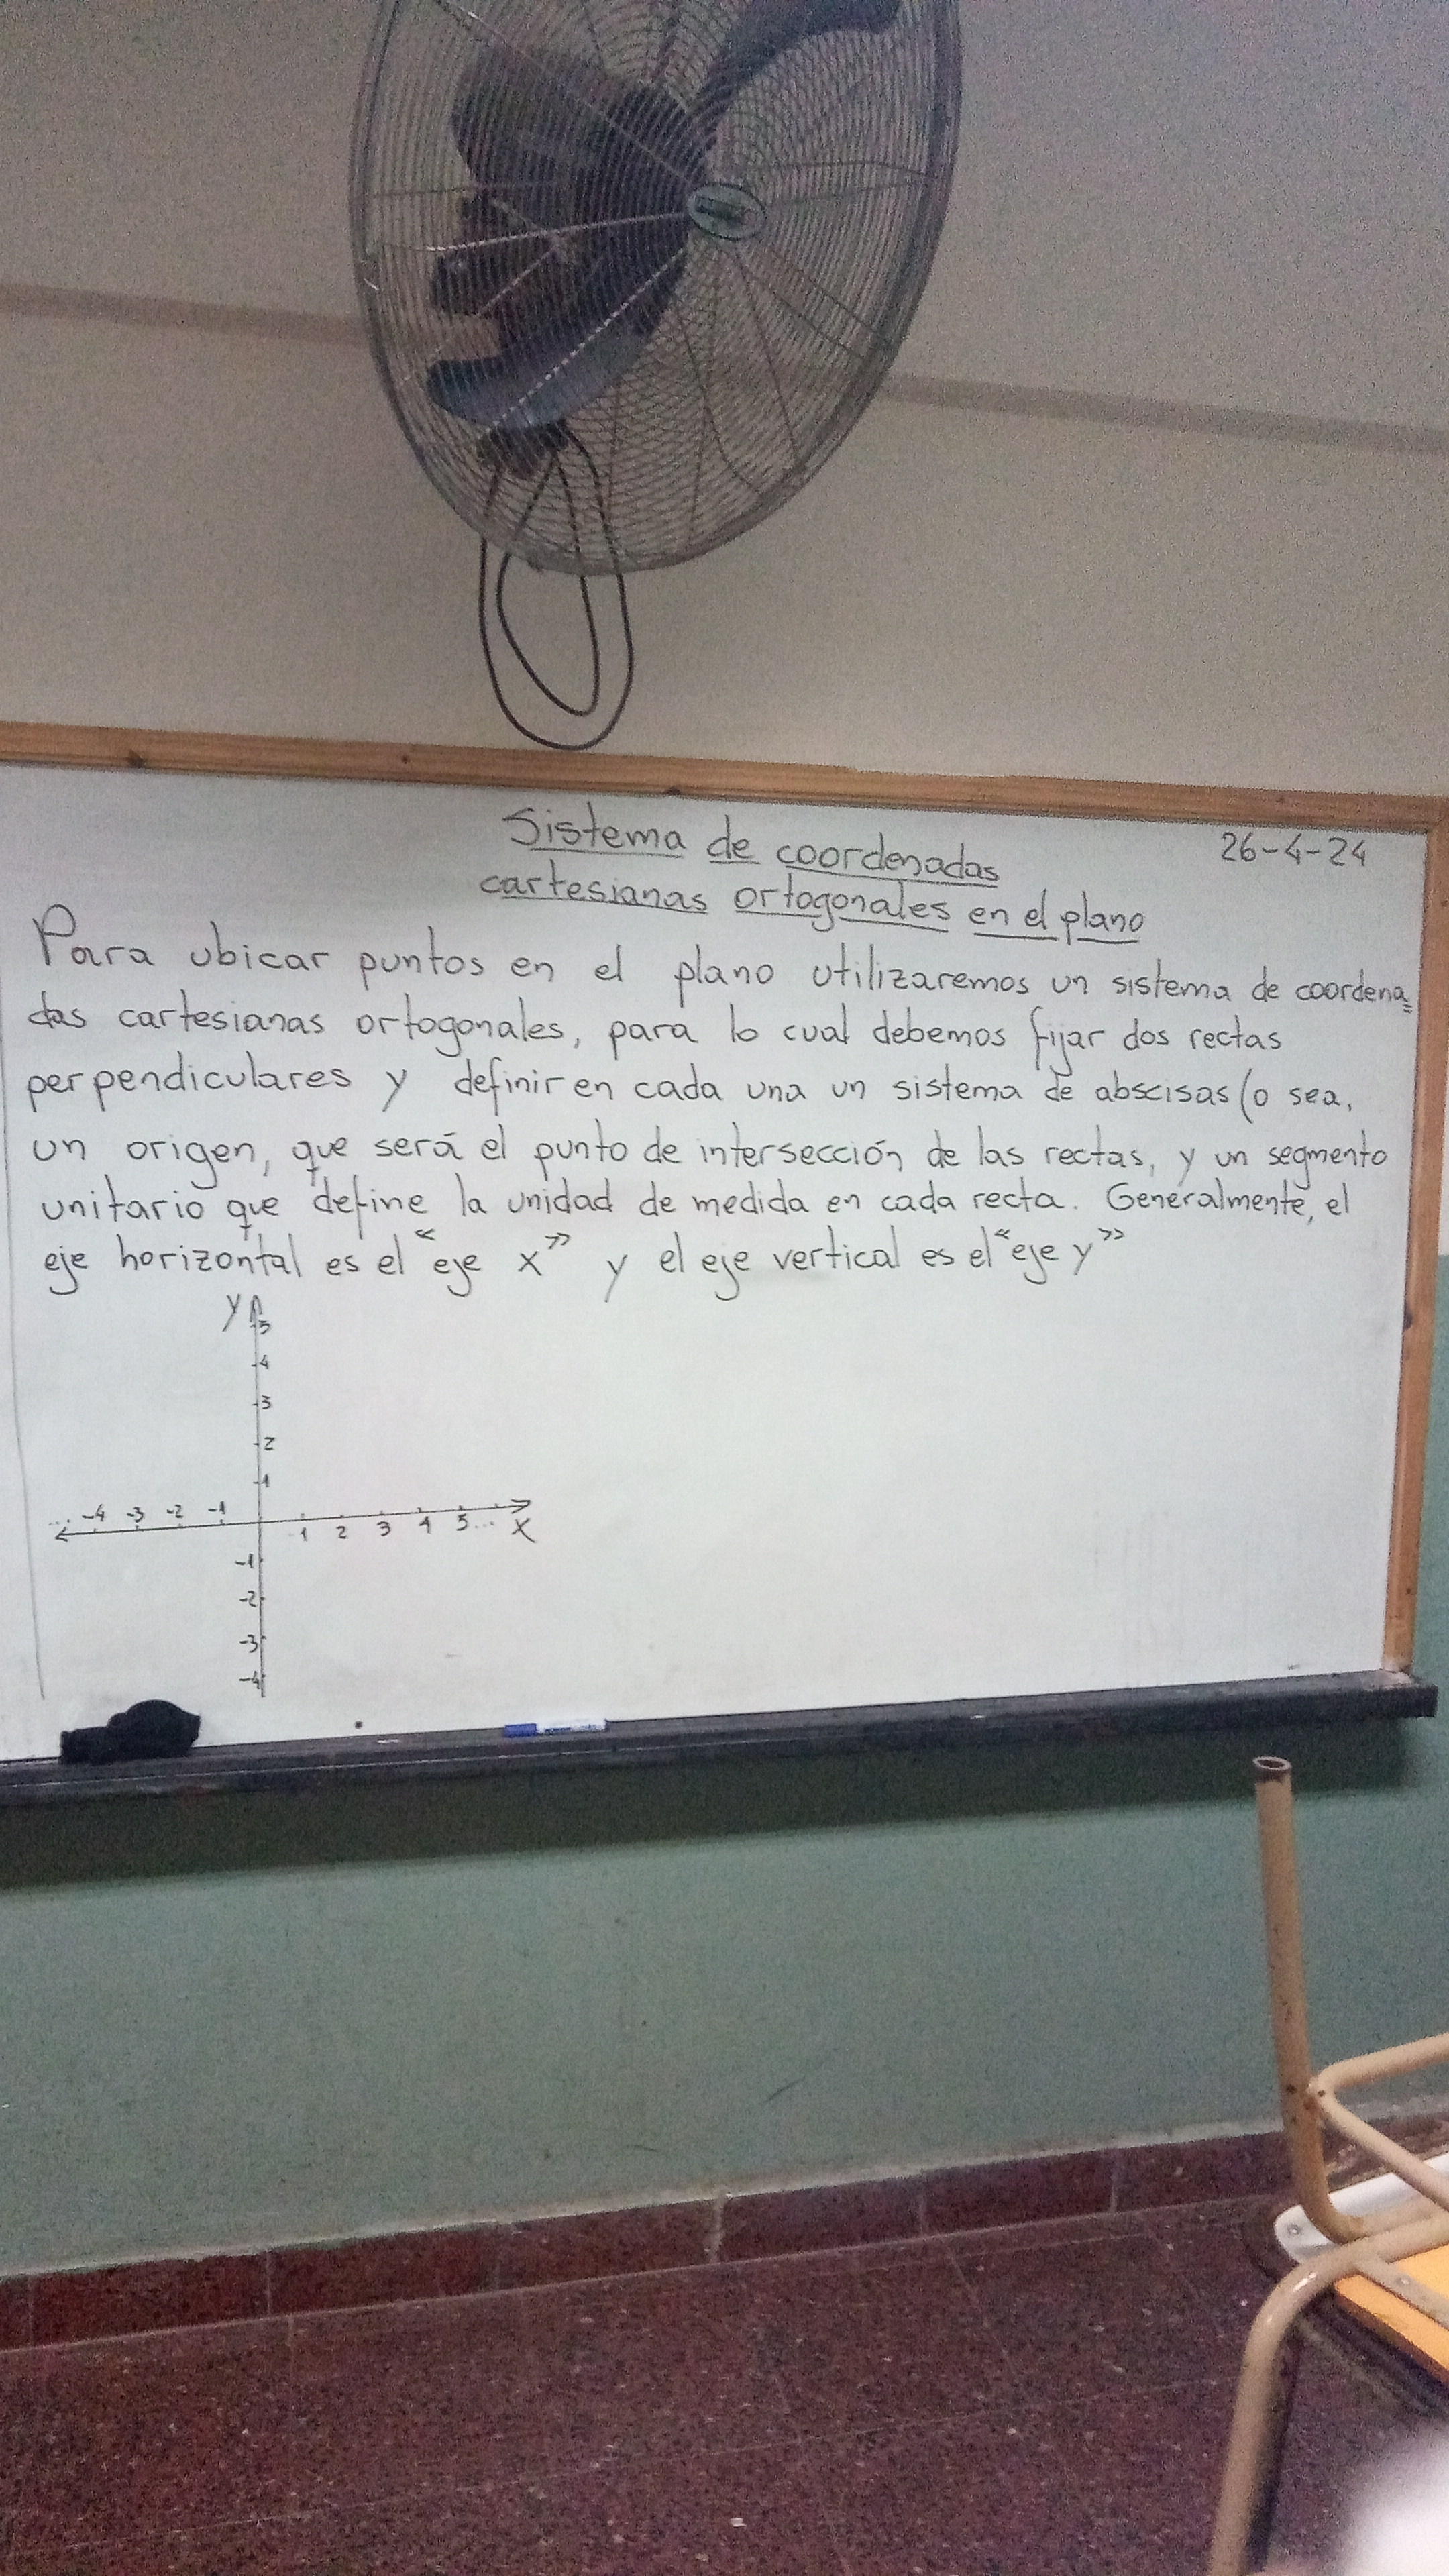 Sistema de coordenadas
26-4-24
cartesianas ortogonales en el plano
Para ubicar puntos en el plano utilizaremos un sistema de coordena=
das cartesianas ortogonales, para lo cual debemos fijar dos rectas
perpendiculares y definir en cada una un sistema de abscisas (o sea,
un origen, que será el punto de intersección de las rectas, y un segmento
unitario que define la unidad de medida en cada recta. Generalmente, el
eje horizontal es el "eje x" y el eje vertical es el "eje y"
y
5
4
3
2
1
... -4 -3 -2 -1
1 2 3 4 5... x
-1
-2
-3
-4